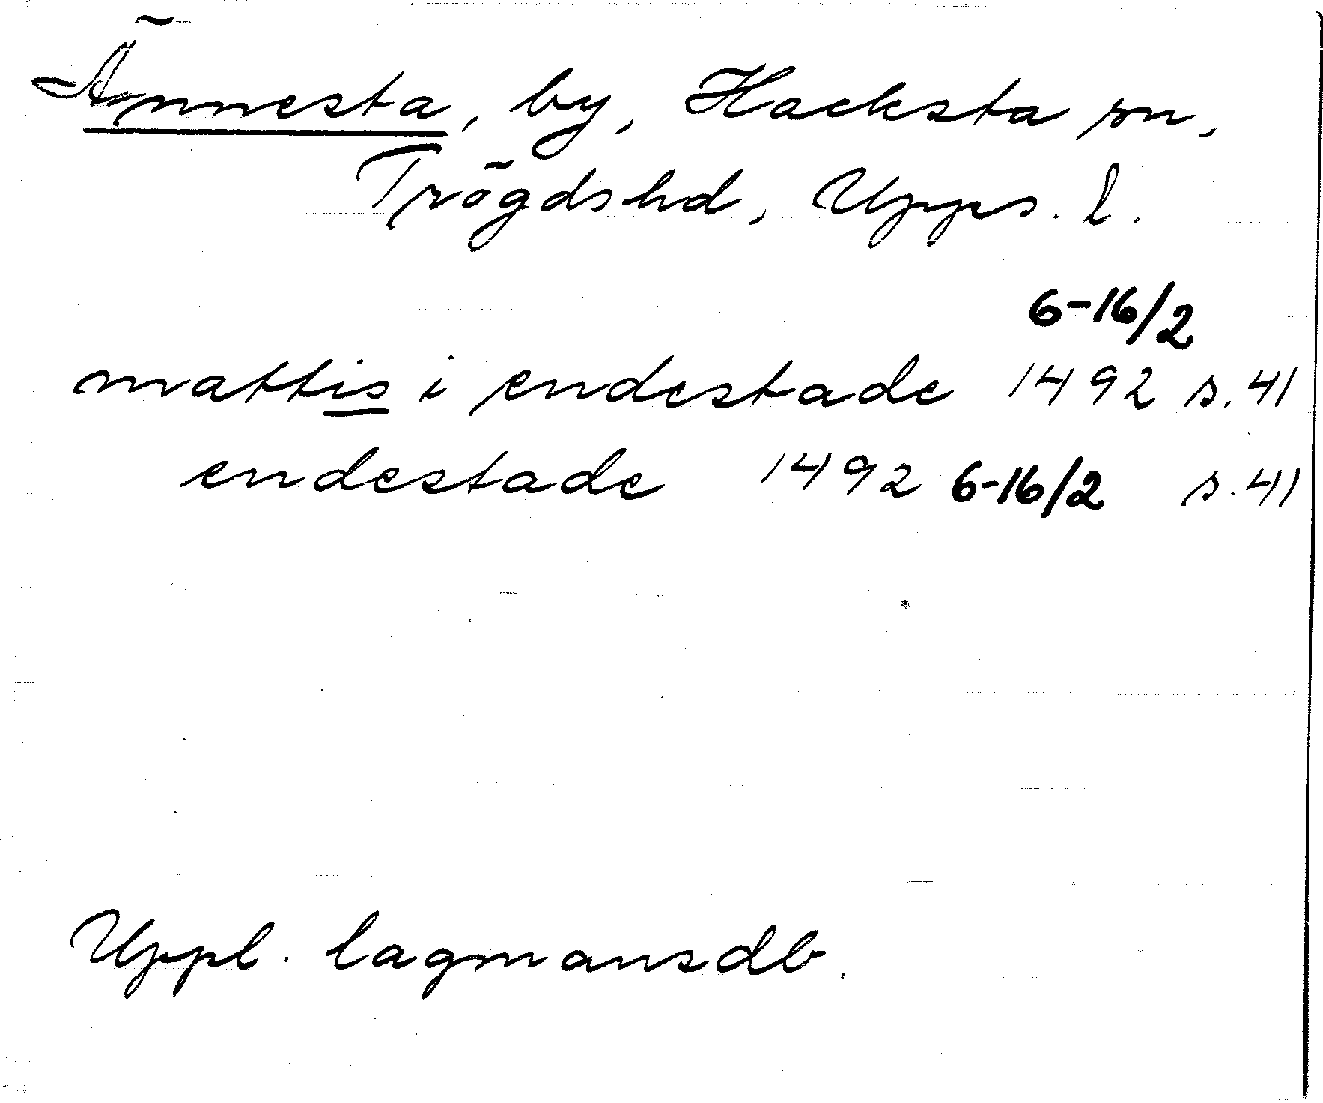 Ännesta, by, Hacksta sn,
Trögdshd, Upps. l.
6-16/2
mattis i endestade 1492 s. 41
endestade 1492 6-16/2 s. 41
Uppl. lagmansdb.